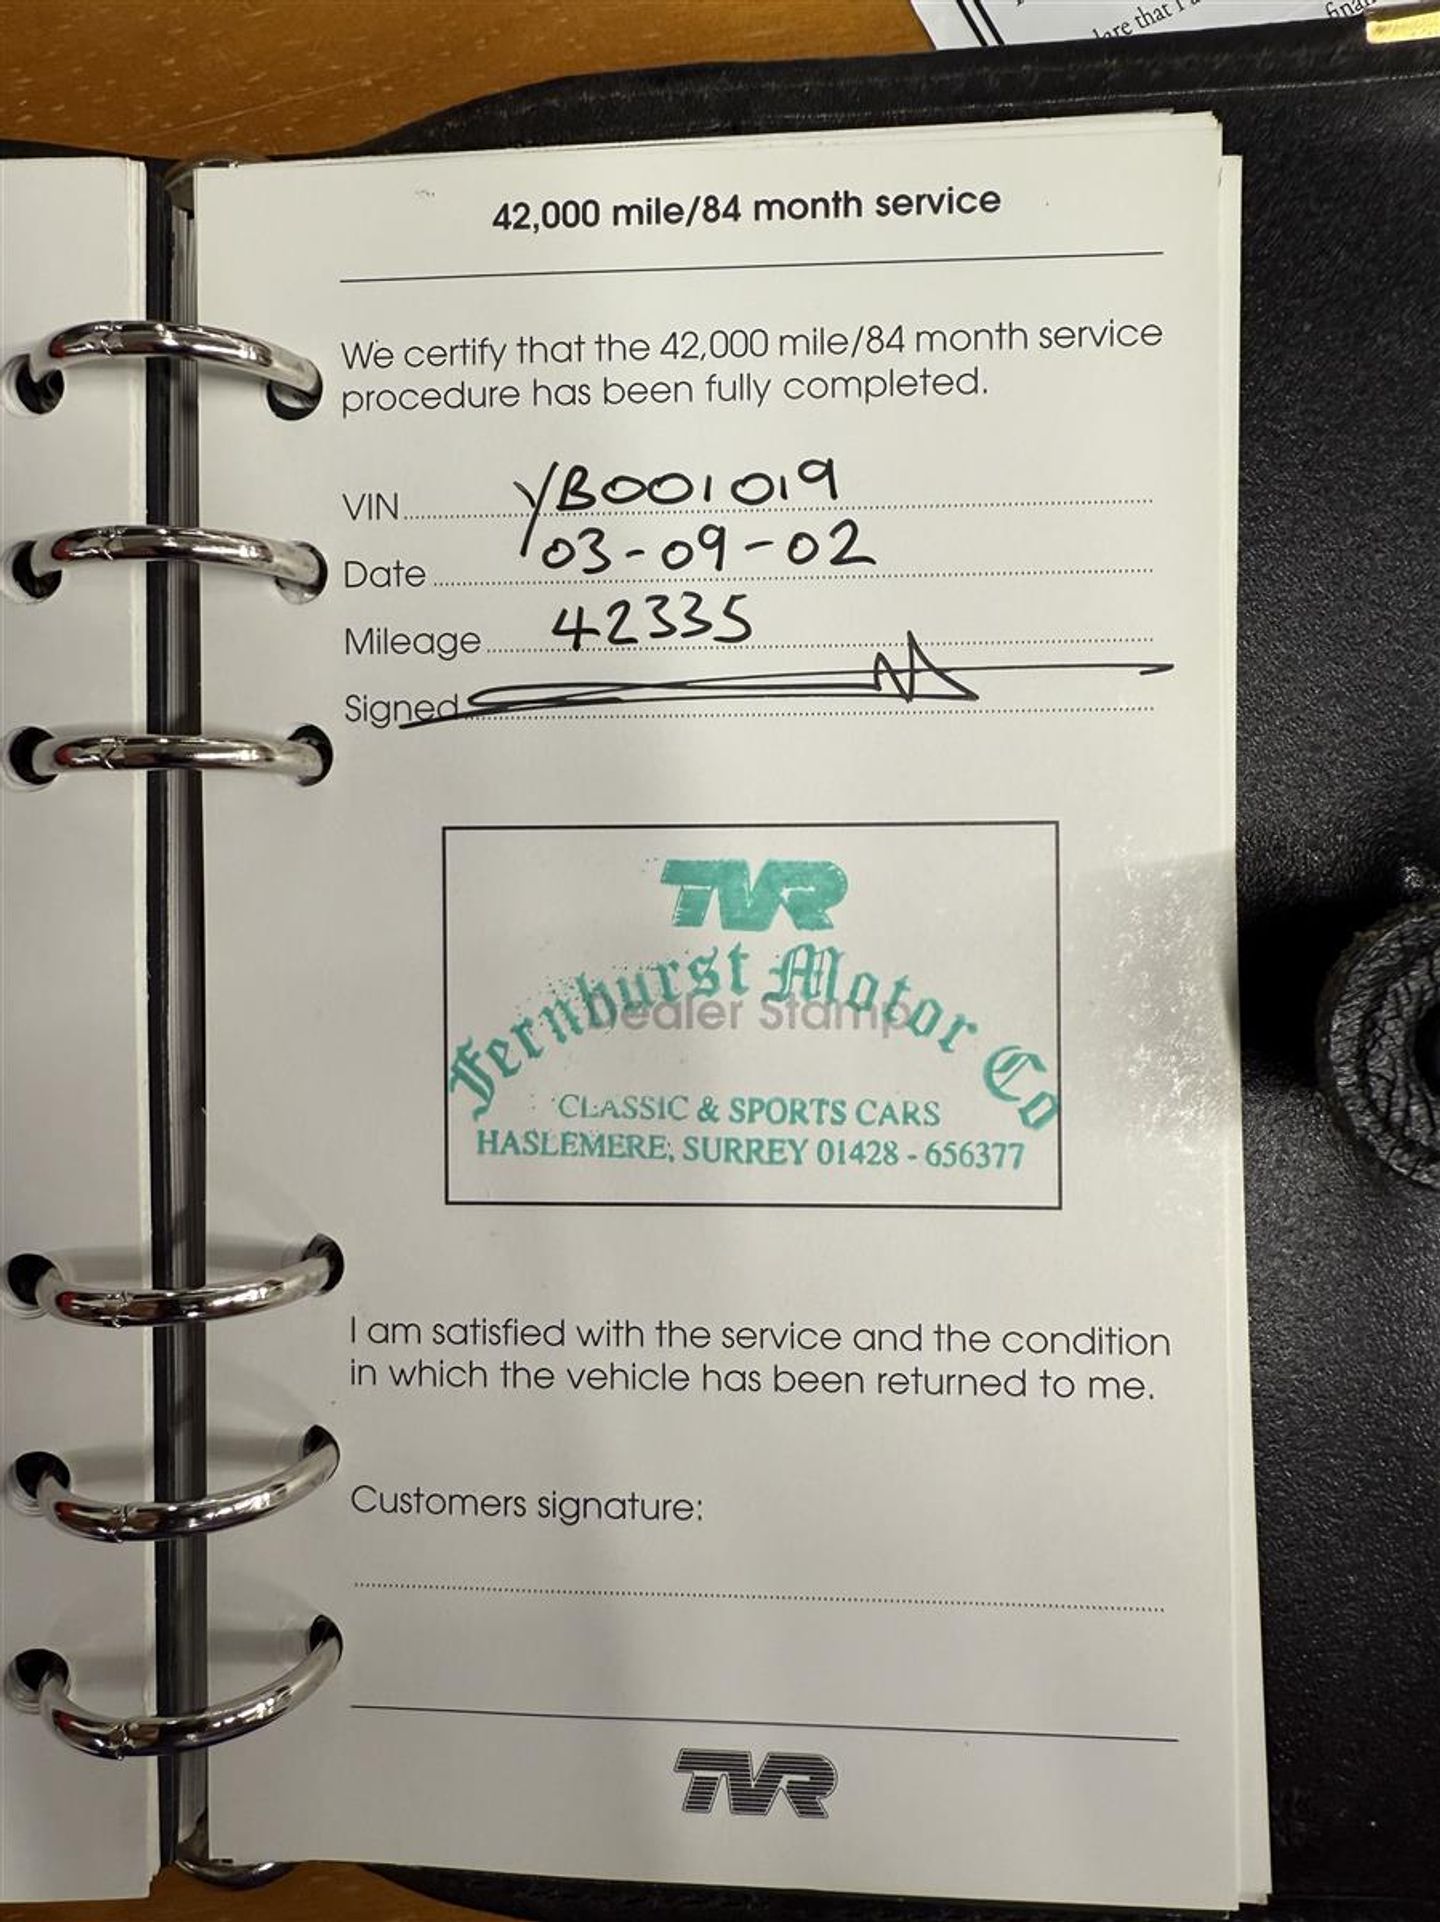 lare that I
42,000 mile/84 month service
We certify that the 42,000 mile/84 month service
procedure has been fully completed.
VIN YB001019
Date 03-09-02
Mileage 42335
Signed
TVR
Fernhurst Motor Co
Dealer Stamp
CLASSIC & SPORTS CARS
HASLEMERE, SURREY 01428 - 656377
I am satisfied with the service and the condition
in which the vehicle has been returned to me.
Customers signature:
TVR